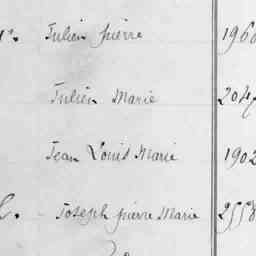 Julien pierre 1960
Julien Marie 2047
Jean Louis Marie 1902
Joseph pierre Marie 2558